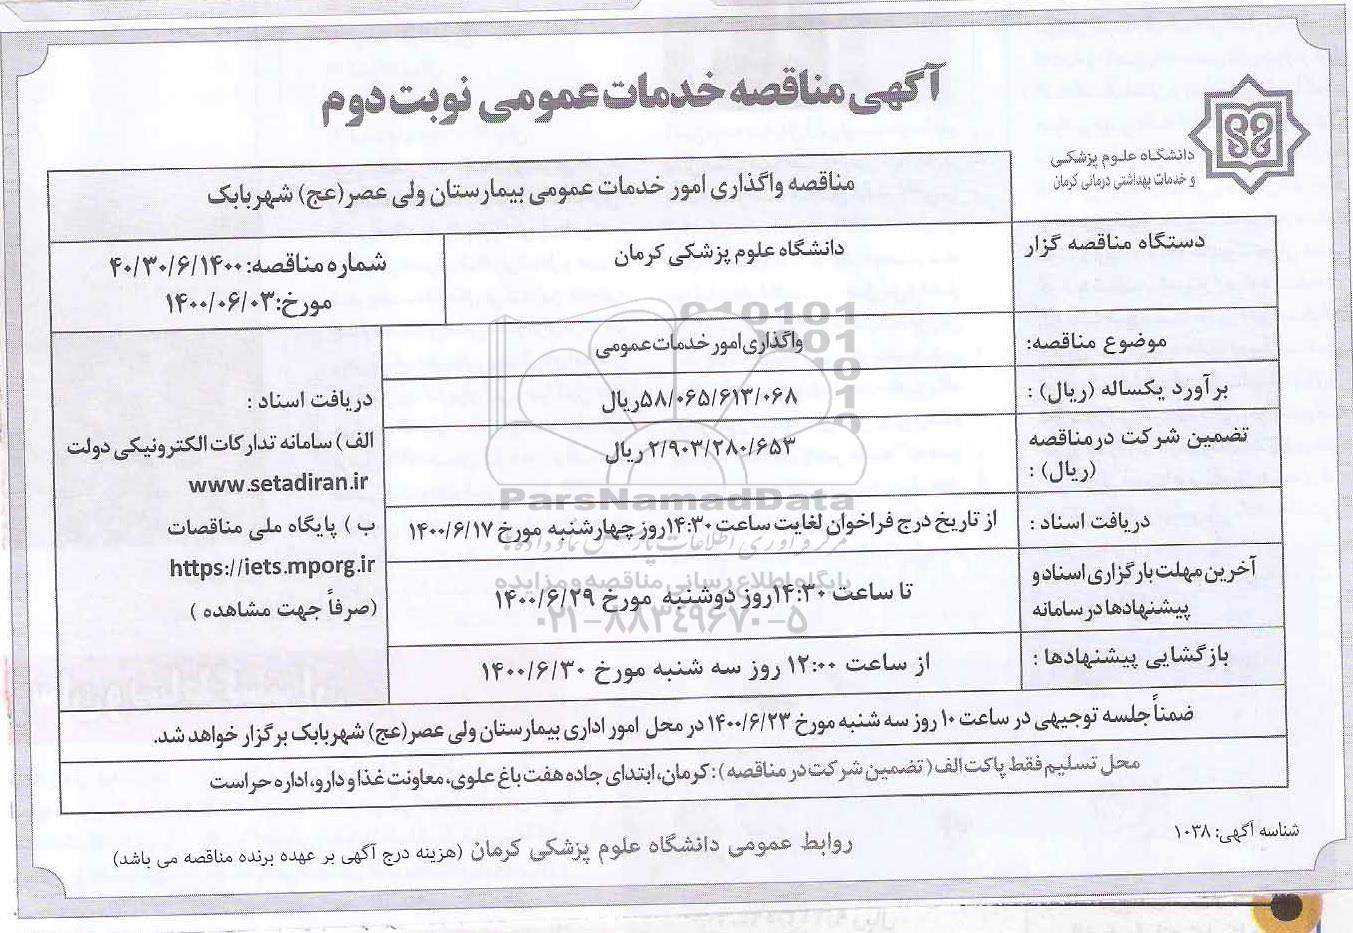 آگهی مناقصه خدمات عمومی نوبت دوم
دانشگاه علوم پزشکی
و خدمات بهداشتی درمانی کرمان
مناقصه واگذاری امور خدمات عمومی بیمارستان ولی عصر(عج) شهربابک
دستگاه مناقصه گزار
دانشگاه علوم پزشکی کرمان
شماره مناقصه: ۴۰/۳۰/۶/۱۴۰۰
مورخ:۱۴۰۰/۰۶/۰۳
موضوع مناقصه:
واگذاری امور خدمات عمومی
برآورد یکساله (ریال) :
۵۸/۰۶۵/۶۱۳/۰۶۸ریال
تضمین شرکت در مناقصه
(ریال) :
۲/۹۰۳/۲۸۰/۶۵۳ ریال
دریافت اسناد :
از تاریخ درج فراخوان لغایت ساعت ۱۴:۳۰روز چهارشنبه مورخ ۱۴۰۰/۶/۱۷
آخرین مهلت بارگزاری اسناد و
پیشنهادها در سامانه
تا ساعت ۱۴:۳۰روز دوشنبه مورخ ۱۴۰۰/۶/۲۹
بازگشایی پیشنهادها :
از ساعت ۱۲:۰۰ روز سه شنبه مورخ ۱۴۰۰/۶/۳۰
دریافت اسناد :
الف) سامانه تدارکات الکترونیکی دولت
www.setadiran.ir
ب ) پایگاه ملی مناقصات
https://iets.mporg.ir
(صرفاً جهت مشاهده )
ضمناً جلسه توجیهی در ساعت ۱۰ روز سه شنبه مورخ ۱۴۰۰/۶/۲۳ در محل امور اداری بیمارستان ولی عصر(عج) شهربابک برگزار خواهد شد.
محل تسلیم فقط پاکت الف( تضمین شرکت در مناقصه) : کرمان، ابتدای جاده هفت باغ علوی، معاونت غذا و دارو، اداره حراست
شناسه آگهی: ۱۰۳۸
روابط عمومی دانشگاه علوم پزشکی کرمان (هزینه درج آگهی بر عهده برنده مناقصه می باشد)
ParsNamadData
پایگاه اطلاع رسانی مناقصه و مزایده
۰۲۱-۸۸۳۴۹۶۷۰-۵